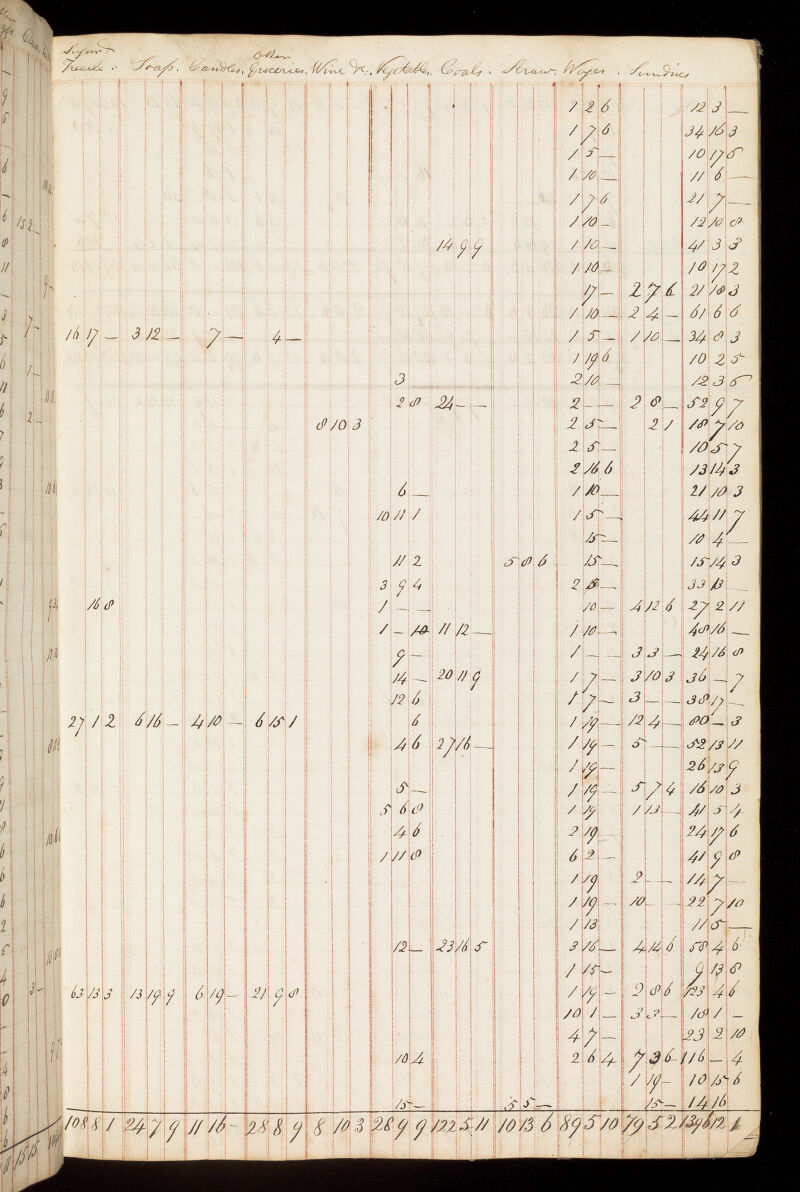 Sugar &
Treacle. Soap. Candles. Other Groceries. Wine &c. Vegetables. Coals. Straw. Wages. Sundries
1 2 6 12 3 —
1 7 6 34 16 3
1 5 — 10 17 6
1 10 — 11 6 —
1 7 6 21 7 —
1 10 — 12 10 8
14 9 9 1 10 — 41 3 3
1 10 — 10 17 2
17 — 2 7 6 21 18 3
1 10 — 2 4 — 61 6 6
16 17 — 3 12 — 7 — 4 — 1 5 — 1 10 — 34 8 3
1 19 6 10 2 5
3 2 10 — 12 3 6
2 8 24 — — 2 — — 2 8 — 52 9 7
8 10 3 2 5 — 2 1 18 7 10
2 5 — 10 5 7
2 16 6 13 14 3
6 — 1 10 — 21 10 3
10 11 1 1 5 — 44 11 7
15 — 10 4 —
11 2 5 8 6 15 — 15 14 3
3 9 4 2 5 — 33 13 —
16 8 1 — — 10 — 4 12 6 27 2 11
1 — 10 11 12 — 1 10 — 48 16 —
9 — 1 — — 3 3 — 24 16 8
14 — 20 11 9 1 7 — 3 10 3 36 — 7
12 6 1 7 — 3 — — 38 17 —
27 1 2 6 16 — 4 10 — 6 15 1 6 1 19 — 12 4 — 80 — 3
4 6 27 16 — 1 19 — 5 — — 52 13 11
1 19 — 26 13 9
5 — 1 19 — 5 7 4 16 10 3
5 6 8 1 19 1 13 — 41 5 4
4 6 2 19 — 24 17 6
1 11 8 6 2 — 41 9 8
1 19 2 — — 14 7 —
1 19 — 10 — — 22 7 10
1 13 11 5 —
12 — 23 16 5 3 16 — 4 14 6 58 4 6
1 15 — 9 13 8
63 13 3 13 19 9 6 19 — 21 9 8 1 19 — 2 8 6 123 4 6
10 1 — 3 3 — 18 1 —
4 7 — 23 2 10
10 4 2 6 4 7 3 6 116 — 4
1 19 — 10 15 6
15 — 5 5 — 15 — 14 16
108 8 1 24 7 9 11 16 — 28 8 9 8 10 3 28 9 9 122 5 11 10 13 6 89 5 10 79 5 2 1396 12 1